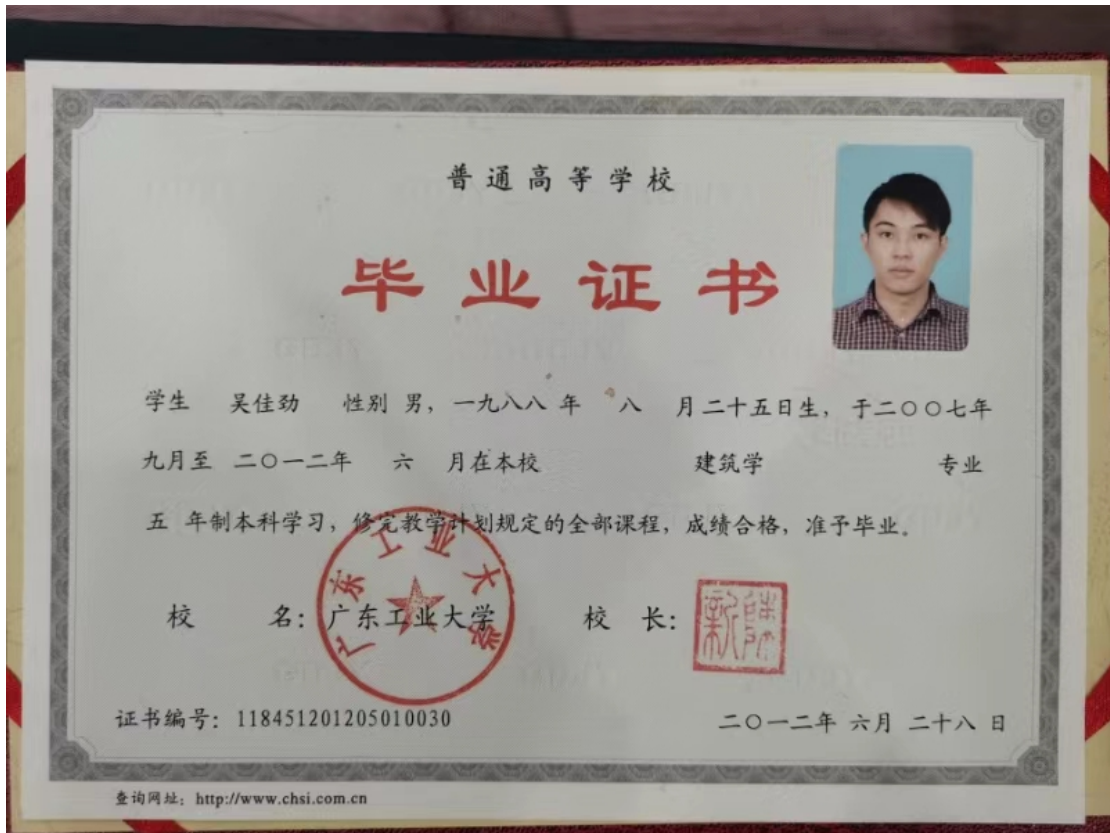 普通高等学校
毕业证书
学生 吴佳劲 性别 男，一九八八 年 八 月二十五日生，于二〇〇七年
九月至 二〇一二年 六 月在本校 建筑学 专业
五 年制本科学习，修完教学计划规定的全部课程，成绩合格，准予毕业。
广东工业大学
校 名：广东工业大学 校 长：
证书编号：118451201205010030 二〇一二年 六月 二十八 日
查询网址：http://www.chsi.com.cn